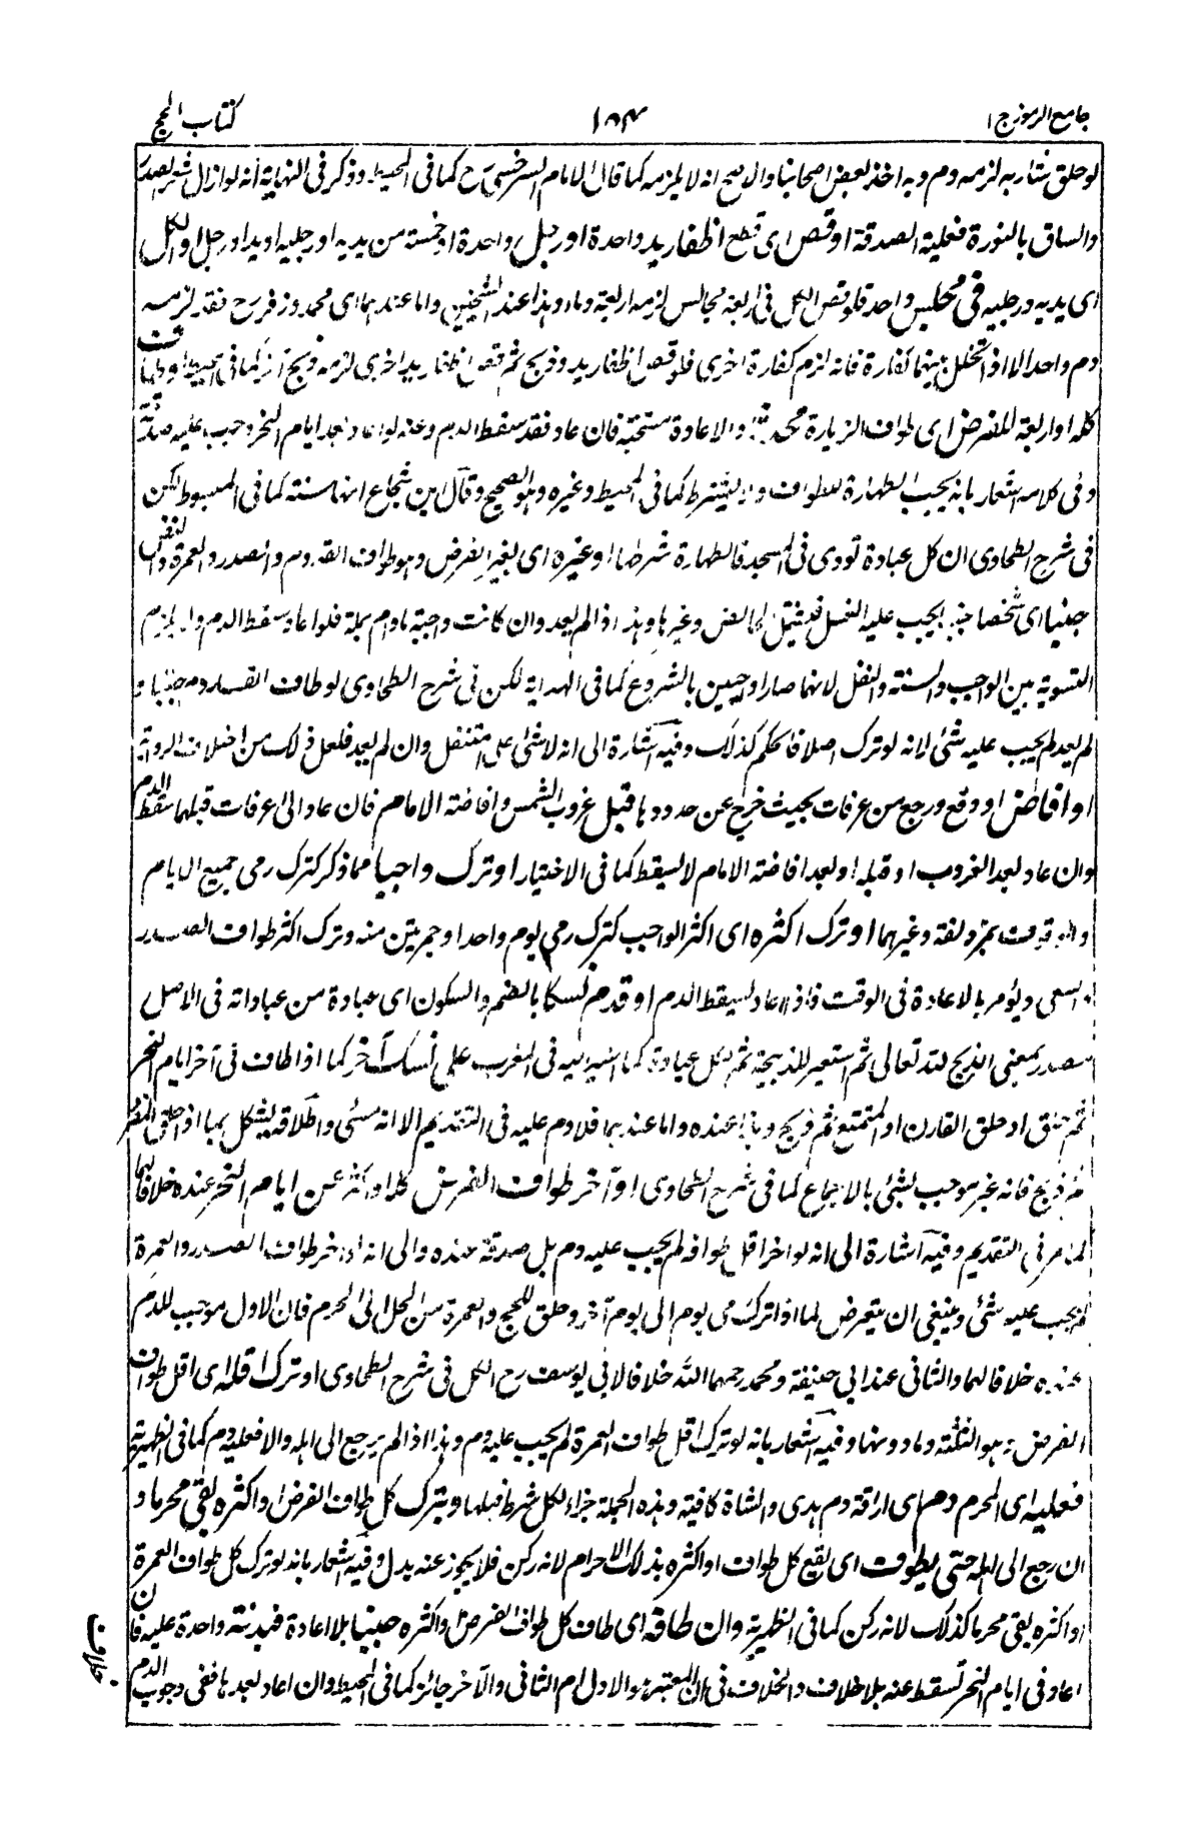 جامع الرموز ج ١
١٨٤
كتاب الحج
لو حلق شاربه لزمه دم وبه اخذ بعض اصحابنا والاصح انه لا يلزمه كما قال الامام السرخسي رح كما في المحيط وذكر في النهاية انه لو ازال شعر الصدر
والساق بالنورة فعليه الصدقة او قص اى قطع اظفار يد واحدة او رجل واحدة او خمسة من يديه او رجليه او يد او رجل او الكل
اى يديه ورجليه فى مجلس واحد فلو قص الكل فى اربعة مجالس لزمه اربعة دماء وهذا عند الشيخين واما عندهما اى محمد وزفر رح فقد لزمه
دم واحد الا اذا تخلل بينهما كفارة فانه لزم كفارة اخرى فلو قص اظفار يد وذبح ثم قص اظفار يد اخرى لزمه ذبح آخر كما فى المحيط او طاف
كله او اربعة للفرض اى طواف الزيارة محدثا والاعادة مستحبة فان عاد فقد سقط الدم وعنه لو اعاد بعد ايام النحر وجب عليه صدقة
وفى كلامه اشعار بانه يجب الطهارة للطواف ولا يشترط كما فى المحيط وغيره وهو الصحيح وقال ابن شجاع انها سنة كما فى المبسوط لكن
فى شرح الطحاوى ان كل عبادة تؤدى فى المسجد فالطهارة شرطها او غيره اى لغير الفرض وهو طواف القدوم والصدر والعمرة والنفل
جنبا اى شخصا يجب عليه الغسل فيشتمل الحائض وغيرها وهذا اذا لم يعد وان كانت واجبة مادام بمكة فلو اعاد سقط الدم ولا يلزم
التسوية بين الواجب والسنة والنفل لانهما صارا واجبين بالشروع كما فى الهداية لكن فى شرح الطحاوى لو طاف القدوم جنبا و
لم يعد لم يجب عليه شىء لانه لو ترك اصلا فالحكم كذلك وفيه اشارة الى انه لا شىء على المتنفل وان لم يعد فلعل ذلك من اختلاف الرواية
او افاض او دفع ورجع من عرفات بحيث خرج عن حدودها قبل غروب الشمس وافاضة الامام فان عاد الى عرفات قبلها سقط الدم
وان عاد بعد الغروب او قبله او بعد افاضة الامام لا يسقط كما فى الاختيار او ترك واجبا مما ذكر كترك رمى جميع الايام
والوقوف بمزدلفة وغيرهما او ترك اكثره اى اكثر الواجب كترك رمى يوم واحد او جمرتين منه وترك اكثر طواف الصدر
او السعى ويؤمر بالاعادة فى الوقت فاذا اعاد يسقط الدم او قدم نسكا بالضم والسكون اى عبادة من عباداته فى الاصل
مصدر بمعنى الذبح لله تعالى ثم استعير للذبيحة ثم لكل عبادة كما اشير اليه فى المغرب على نسك آخر كما اذا طاف فى آخر ايام النحر
ثم حلق او حلق القارن او المتمتع ثم ذبح وهذا عنده واما عندهما فلا دم عليه فى التقديم الا انه مسىء واطلاقه يشكل بما اذا حلق المفرد
ثم ذبح فانه غير موجب لشىء بالاجماع كما فى شرح الطحاوى او آخر طواف الفرض كله او اكثره عن ايام النحر عنده خلافا لهما
كما مر فى التقديم وفيه اشارة الى انه لو اخر اقل طوافه لم يجب عليه دم بل صدقة عنده والى انه لو اخر طواف الصدر والعمرة
لم يجب عليه شىء وينبغى ان يتعرض لما اذا ترك رمى يوم الى يوم آخر وحلق للحج والعمرة من الحل الى المحرم فان الاول موجب للدم
عنده خلافا لهما والثانى عند ابي حنيفة ومحمد رحمهما الله خلافا لابي يوسف رح الكل فى شرح الطحاوى او ترك اقله اى اقل طواف
الفرض وهو الثلثة وما دونها وفيه اشعار بانه لو ترك اقل طواف العمرة لم يجب عليه دم وهذا اذا لم يرجع الى اهله والا فعليه دم كما فى الظهيرية
فعليه اى المحرم دم اى اراقة دم هدى والشاة كافية وهذه الجملة جزاء لكل شرط قبلها وبترك كل طواف الفرض او اكثره بقى محرما و
ان رجع الى اهله حتى يطوف اى يقع كل طواف او اكثره بذلك الاحرام لانه ركن فلا يجوز عنه بدل وفيه اشعار بانه لو ترك كل طواف العمرة
او اكثره بقى محرما كذلك لانه ركن كما فى الظهيرية وان طافه اى طاف كل طواف الفرض او اكثره جنبا بلا اعادة فبدنة واحدة عليه فان
اعاد فى ايام النحر تسقط عنه بلا خلاف والخلاف فى ان المعتبر هو الاول ام الثانى والآخر جائز كما فى المحيط وان اعاد بعدها ففى وجوب الدم
خلاف